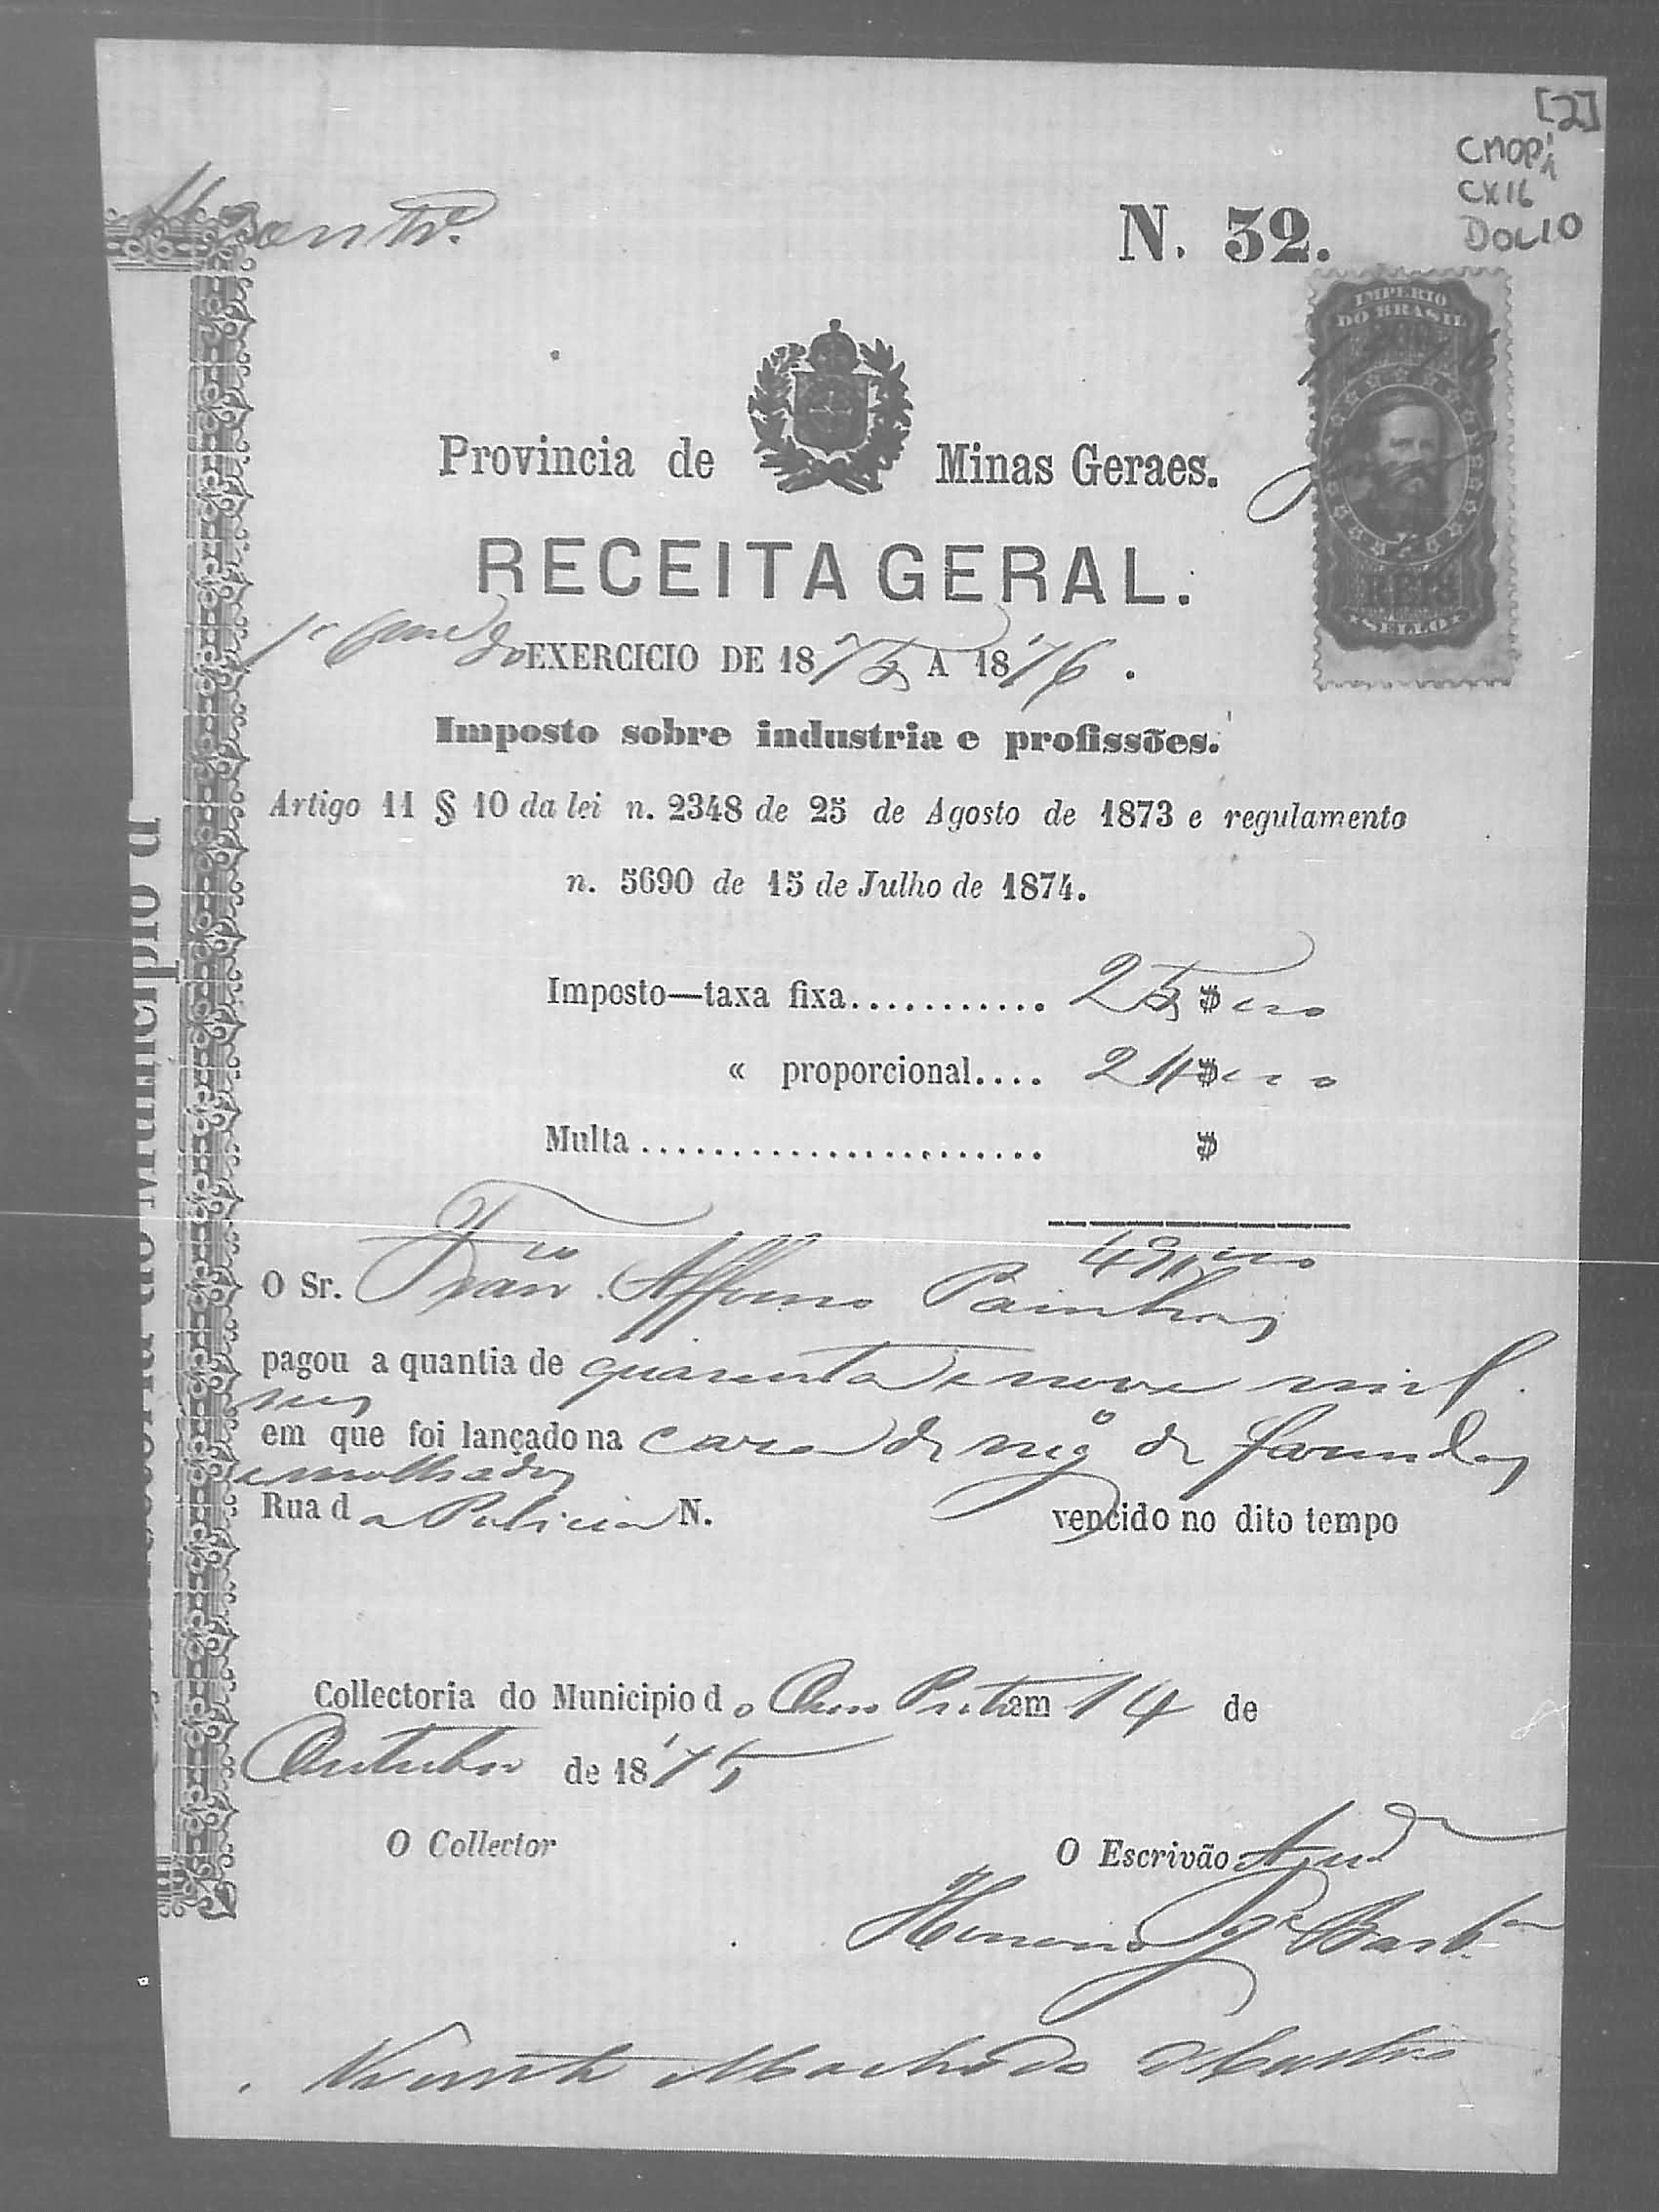 [2]
CMOP
CX16
DOC10
N. 32.
IMPERIO
DO BRASIL
200
REIS
SELLO
Provincia de Minas Geraes.
RECEITA GERAL.
do EXERCICIO DE 1875 A 1876.
Imposto sobre industria e profissões.
Artigo 11 § 10 da lei n. 2348 de 25 de Agosto de 1873 e regulamento
n. 5690 de 15 de Julho de 1874.
Imposto—taxa fixa........... 25$000
« proporcional.... 24$000
Multa ...................... $
49$000
O Sr. Franco Affonso Painhas
pagou a quantia de quarenta e nove mil
reis
em que foi lançado na casa de nego de fasendas
e molhados
Rua da Policia N. vencido no dito tempo
Collectoria do Municipio do Ouro Preto em 14 de
Outubro de 1875
O Collector
O Escrivão Ajude
Barba
Vicente Machado de Castro
Collectoria do Municipio d